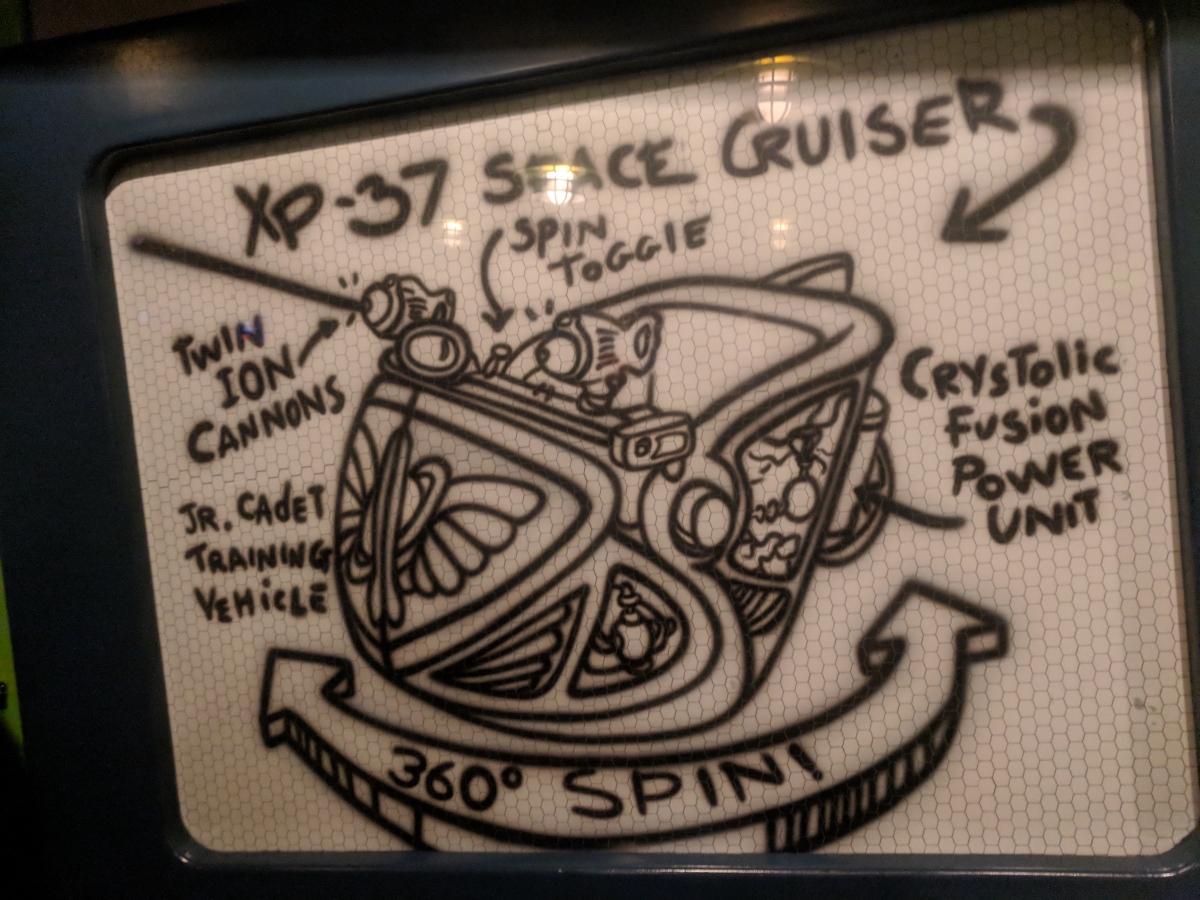 XP-37 SPACE CRUISER
SPIN
TOGGlE
TWIN
ION
CANNONS
CRYSTOlic
FUSiON
POWER
UNIT
JR. CADET
TRAINING
VEHiClE
360° SPIN!